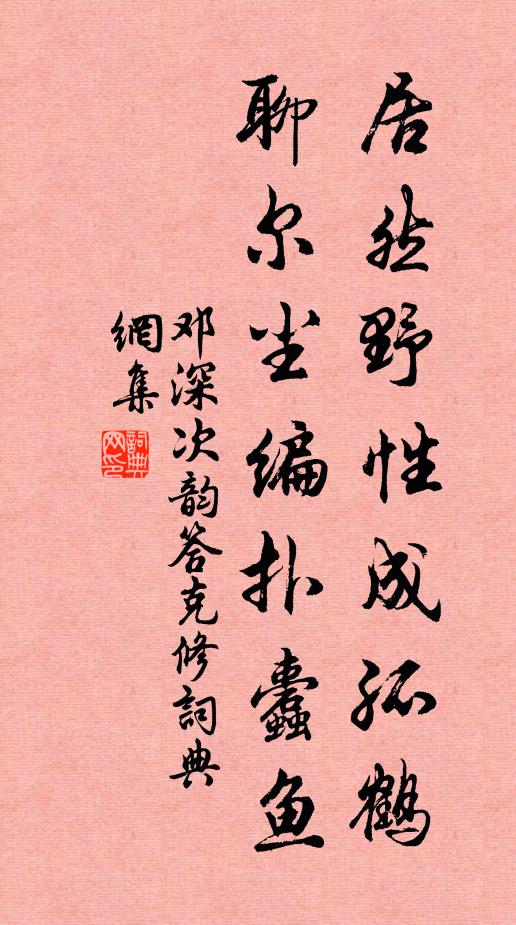 居然野性成孤鹤
聊尔尘编扑蠹鱼
邓深次韵答克修词典
網集
詞典网印